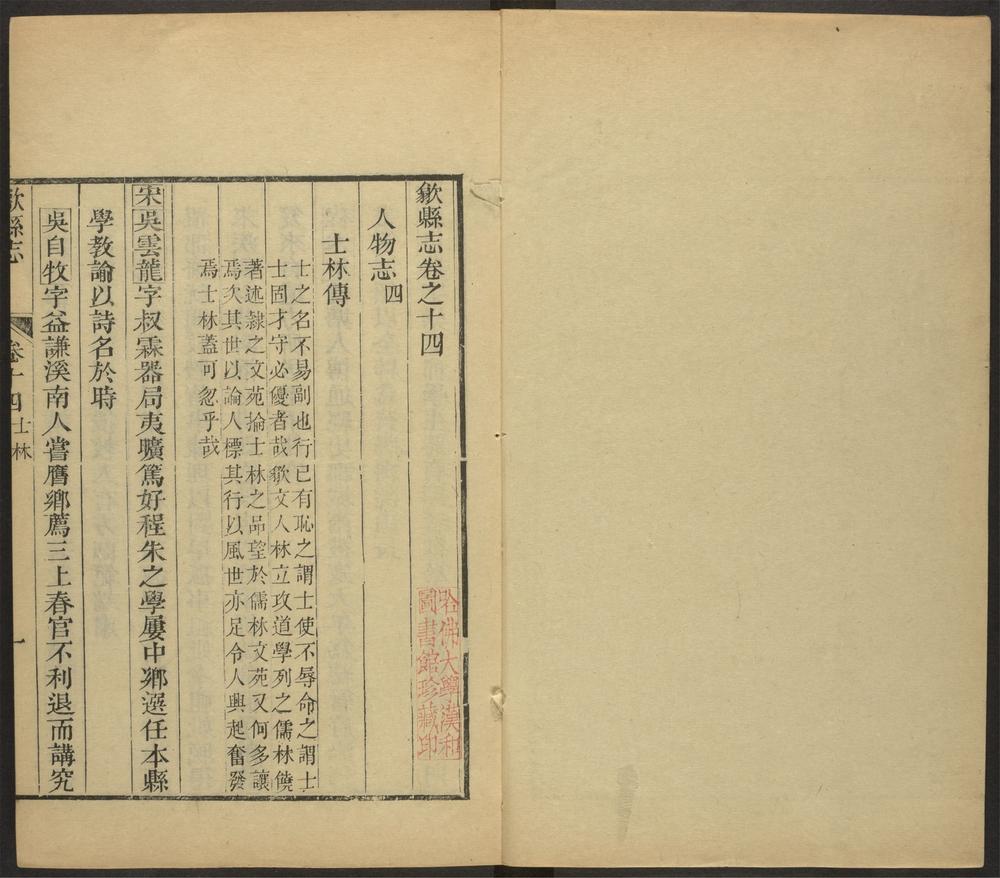 歙縣志卷之十四
人物志四
士林傳
士之名不易副也行已有恥之謂士使不辱命之謂士
士固才守必優者哉歙文人林立攻道學列之儒林饒
著述隷之文苑掄士林之品望於儒林文苑又何多讓
焉矢其世以論人標其行以風世亦足令人興起奮發
焉士林蓋可忽乎哉
宋吳雲龍字叔霖器局夷曠篤好程朱之學屢中鄉選任本縣
學教諭以詩名於時
吳自牧字益謙溪南人嘗膺鄉薦三上春官不利退而講究
歙縣志 卷十四士林 一
哈佛大學漢和
圖書館珍藏印